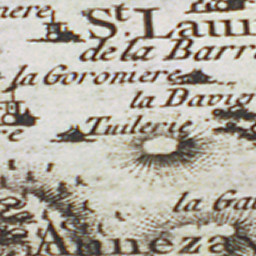 nere
St. Lau
de la Barr
la Goroniere
la Davie
re
Tuilerie
la Ga
Annezay